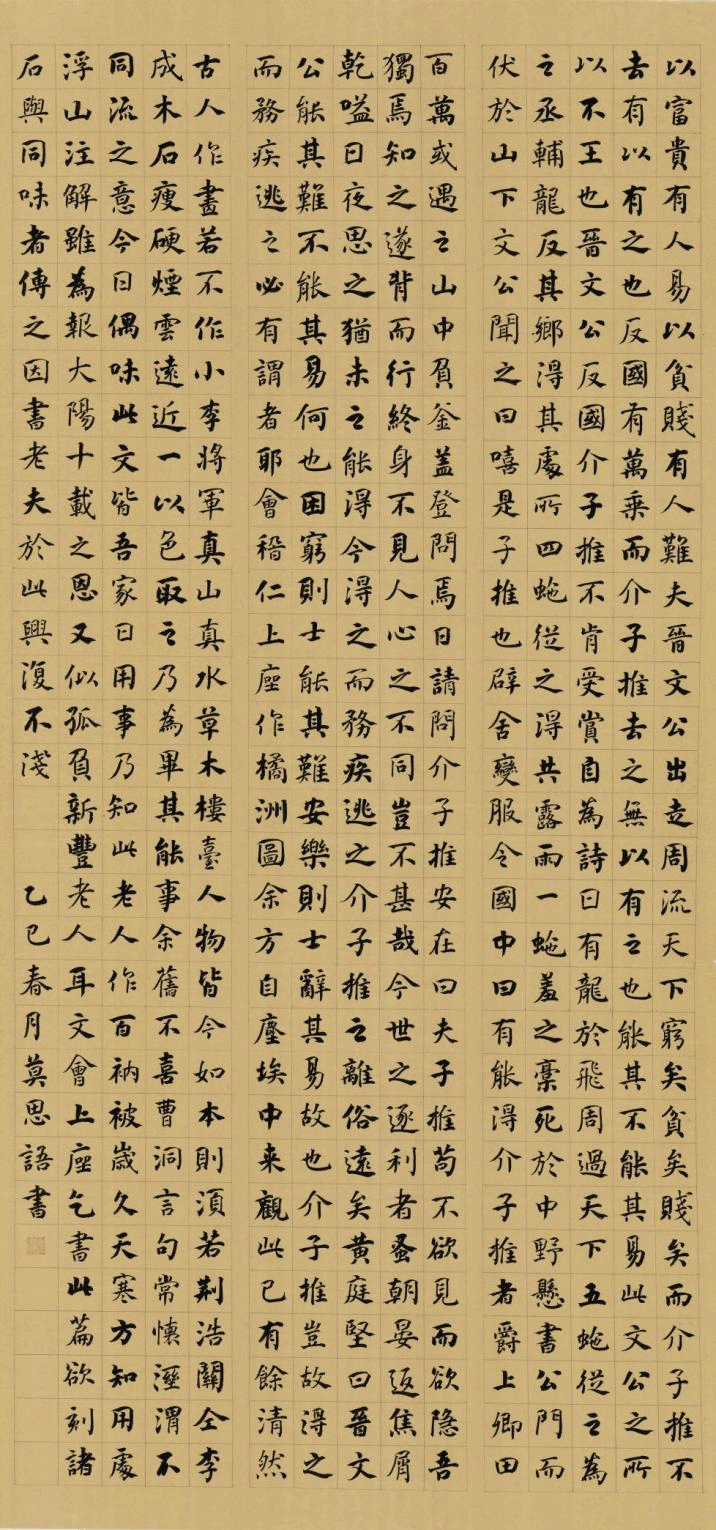 以富貴有人易以貧賤有人難夫晉文公出走周流天下窮矣貧矣賤矣而介子推不
去有以有之也反國有萬乘而介子推去之無以有之也能其不能其易此文公之所
以不王也晉文公反國介子推不肯受賞自為詩曰有龍於飛周過天下五虵從之為
之丞輔龍反其鄉得其處所四虵從之得共露雨一虵羞之槀死於中野懸書公門而
伏於山下文公聞之曰嘻是子推也辟舍變服令國中曰有能得介子推者爵上卿田
百萬或遇之山中負釜蓋登問焉曰請問介子推安在曰夫子推苟不欲見而欲隱吾
獨焉知之遂背而行終身不見人心之不同豈不甚哉今世之逐利者蚤朝晏返焦屑
乾嗌日夜思之猶未之能得今得之而務疾逃之介子推之離俗遠矣黄庭堅曰晉文
公能其難不能其易何也困窮則士能其難安樂則士辭其易故也介子推豈故得之
而務疾逃之必有謂者耶會稽仁上座作橘洲圖余方自塵埃中来觀此已有餘清然
古人作畫若不作小李將軍真山真水草木樓臺人物皆今如本則須若荆浩關仝李
成木石瘦硬煙雲遠近一以色取之乃為畢其能事余舊不喜曹洞言句常懷涇渭不
同流之意今日偶味此文皆吾家日用事乃知此老人作百衲被歲久天寒方知用處
浮山注解雖為報大陽十載之恩又似孤負新豐老人耳文會上座乞書此篇欲刻諸
石與同味者傳之因書老夫於此興復不淺 乙巳春月莫思語書